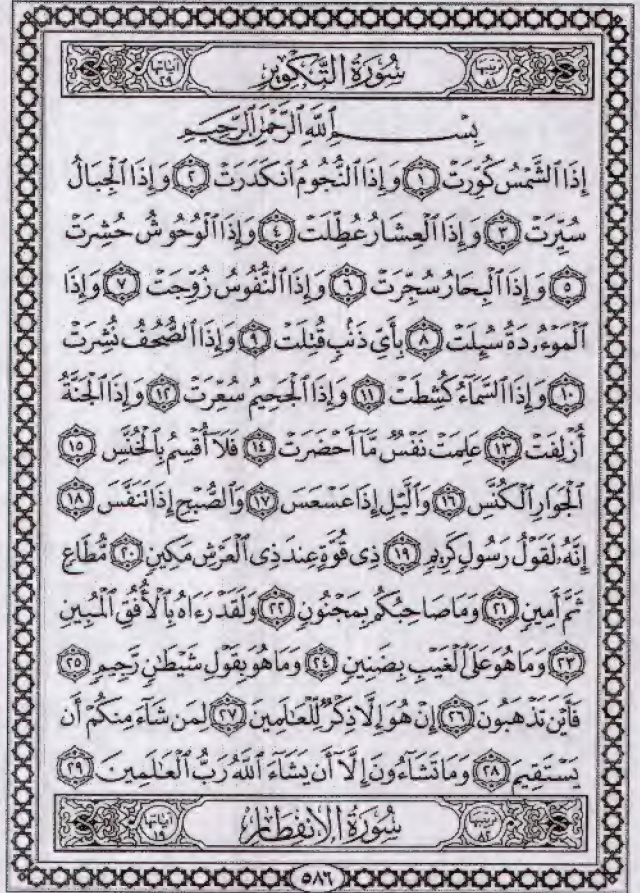 ترتيبها ٨١ سُورَةُ التَّكْوِيرِ آياتها ٢٩
بِسْمِ ٱللَّهِ ٱلرَّحْمَٰنِ ٱلرَّحِيمِ
إِذَا ٱلشَّمْسُ كُوِّرَتْ ١ وَإِذَا ٱلنُّجُومُ ٱنكَدَرَتْ ٢ وَإِذَا ٱلْجِبَالُ
سُيِّرَتْ ٣ وَإِذَا ٱلْعِشَارُ عُطِّلَتْ ٤ وَإِذَا ٱلْوُحُوشُ حُشِرَتْ
٥ وَإِذَا ٱلْبِحَارُ سُجِّرَتْ ٦ وَإِذَا ٱلنُّفُوسُ زُوِّجَتْ ٧ وَإِذَا
ٱلْمَوْءُۥدَةُ سُئِلَتْ ٨ بِأَيِّ ذَنۢبٍ قُتِلَتْ ٩ وَإِذَا ٱلصُّحُفُ نُشِرَتْ
١٠ وَإِذَا ٱلسَّمَآءُ كُشِطَتْ ١١ وَإِذَا ٱلْجَحِيمُ سُعِّرَتْ ١٢ وَإِذَا ٱلْجَنَّةُ
أُزْلِفَتْ ١٣ عَلِمَتْ نَفْسٌ مَّآ أَحْضَرَتْ ١٤ فَلَآ أُقْسِمُ بِٱلْخُنَّسِ ١٥
ٱلْجَوَارِ ٱلْكُنَّسِ ١٦ وَٱلَّيْلِ إِذَا عَسْعَسَ ١٧ وَٱلصُّبْحِ إِذَا تَنَفَّسَ ١٨
إِنَّهُۥ لَقَوْلُ رَسُولٍ كَرِيمٍ ١٩ ذِى قُوَّةٍ عِندَ ذِى ٱلْعَرْشِ مَكِينٍ ٢٠ مُّطَاعٍ
ثَمَّ أَمِينٍ ٢١ وَمَا صَاحِبُكُم بِمَجْنُونٍ ٢٢ وَلَقَدْ رَءَاهُ بِٱلْأُفُقِ ٱلْمُبِينِ
٢٣ وَمَا هُوَ عَلَى ٱلْغَيْبِ بِضَنِينٍ ٢٤ وَمَا هُوَ بِقَوْلِ شَيْطَٰنٍ رَّجِيمٍ ٢٥
فَأَيْنَ تَذْهَبُونَ ٢٦ إِنْ هُوَ إِلَّا ذِكْرٌ لِّلْعَٰلَمِينَ ٢٧ لِمَن شَآءَ مِنكُمْ أَن
يَسْتَقِيمَ ٢٨ وَمَا تَشَآءُونَ إِلَّآ أَن يَشَآءَ ٱللَّهُ رَبُّ ٱلْعَٰلَمِينَ ٢٩
ترتيبها ٨٢ سُورَةُ الِانفِطَارِ آياتها ١٩
٥٨٦